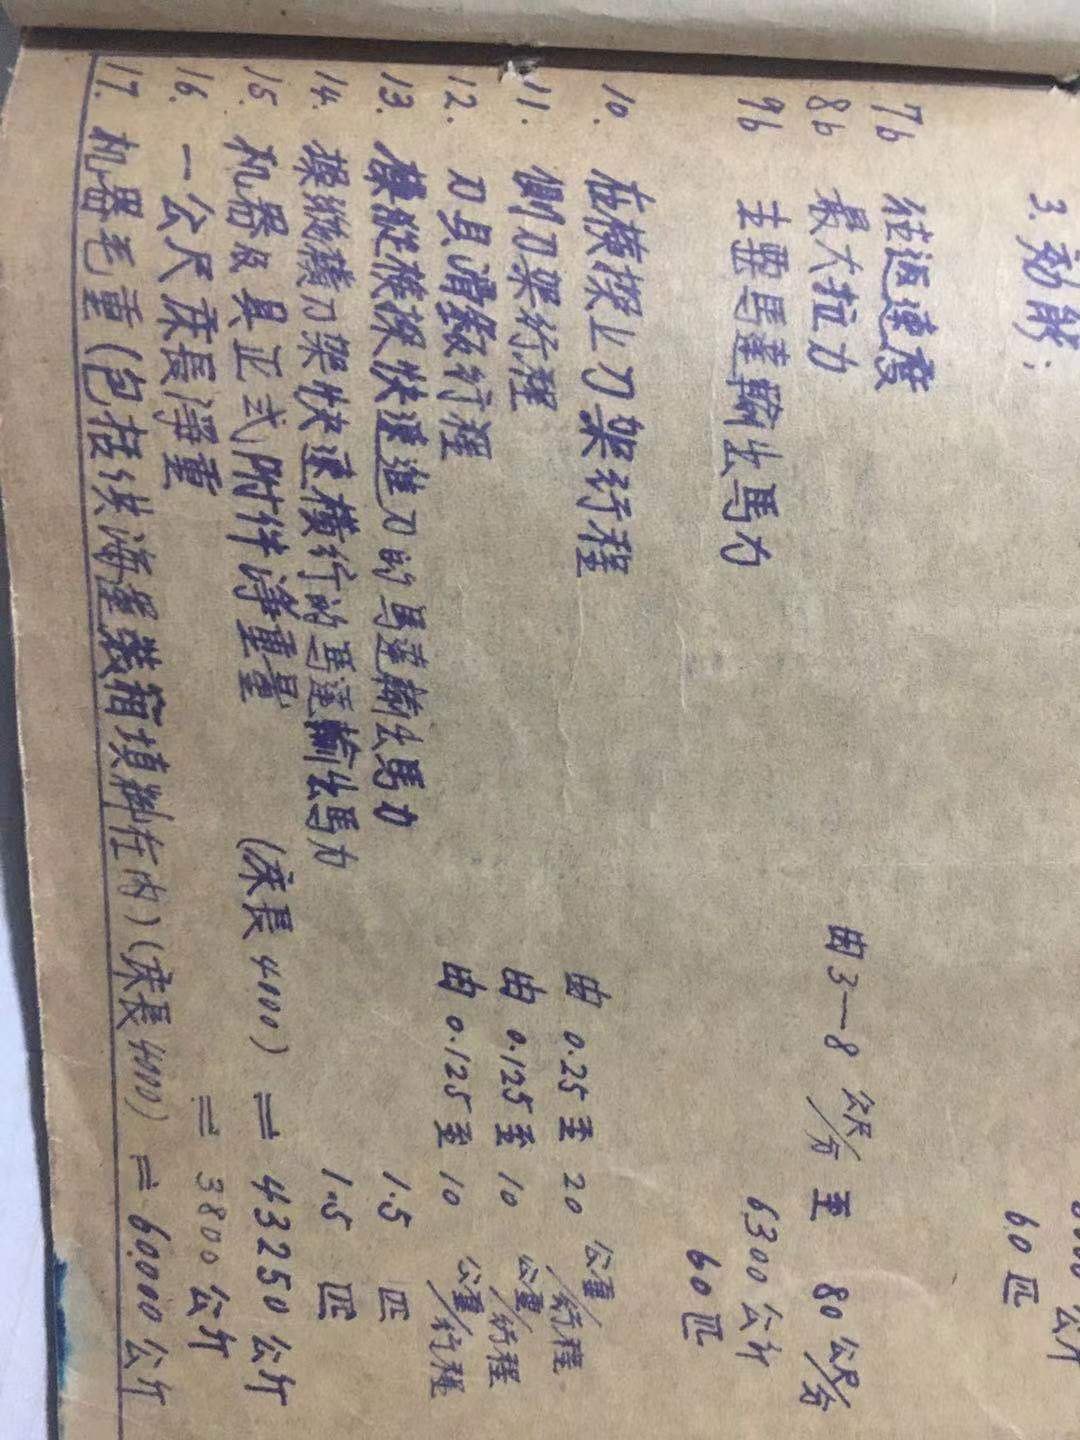 6000 公斤
60 匹
3. 动能:
7b 往返速度 由 3—8 公尺/分 至 80 公尺/分
8b 最大拉力 6300 公斤
9b 主要馬達輸出馬力 60 匹
10. 在橫樑上刀架行程 由 0.25 至 20 公厘/行程
11. 側刀架行程 由 0.125 至 10 公厘/行程
12. 刀具滑鞍行程 由 0.125 至 10 公厘/行程
13. 操縱橫樑快速進刀的馬達輸出馬力 1.5 匹
14. 操縱刀架快速橫行的馬達輸出馬力 1.5 匹
15. 机器及其正式附件淨重量 (床長 4000) = 43250 公斤
16. 一公尺床長淨重 = 3800 公斤
17. 机器毛重(包括海運裝箱填料在內)(床長 4000) = 60.000 公斤